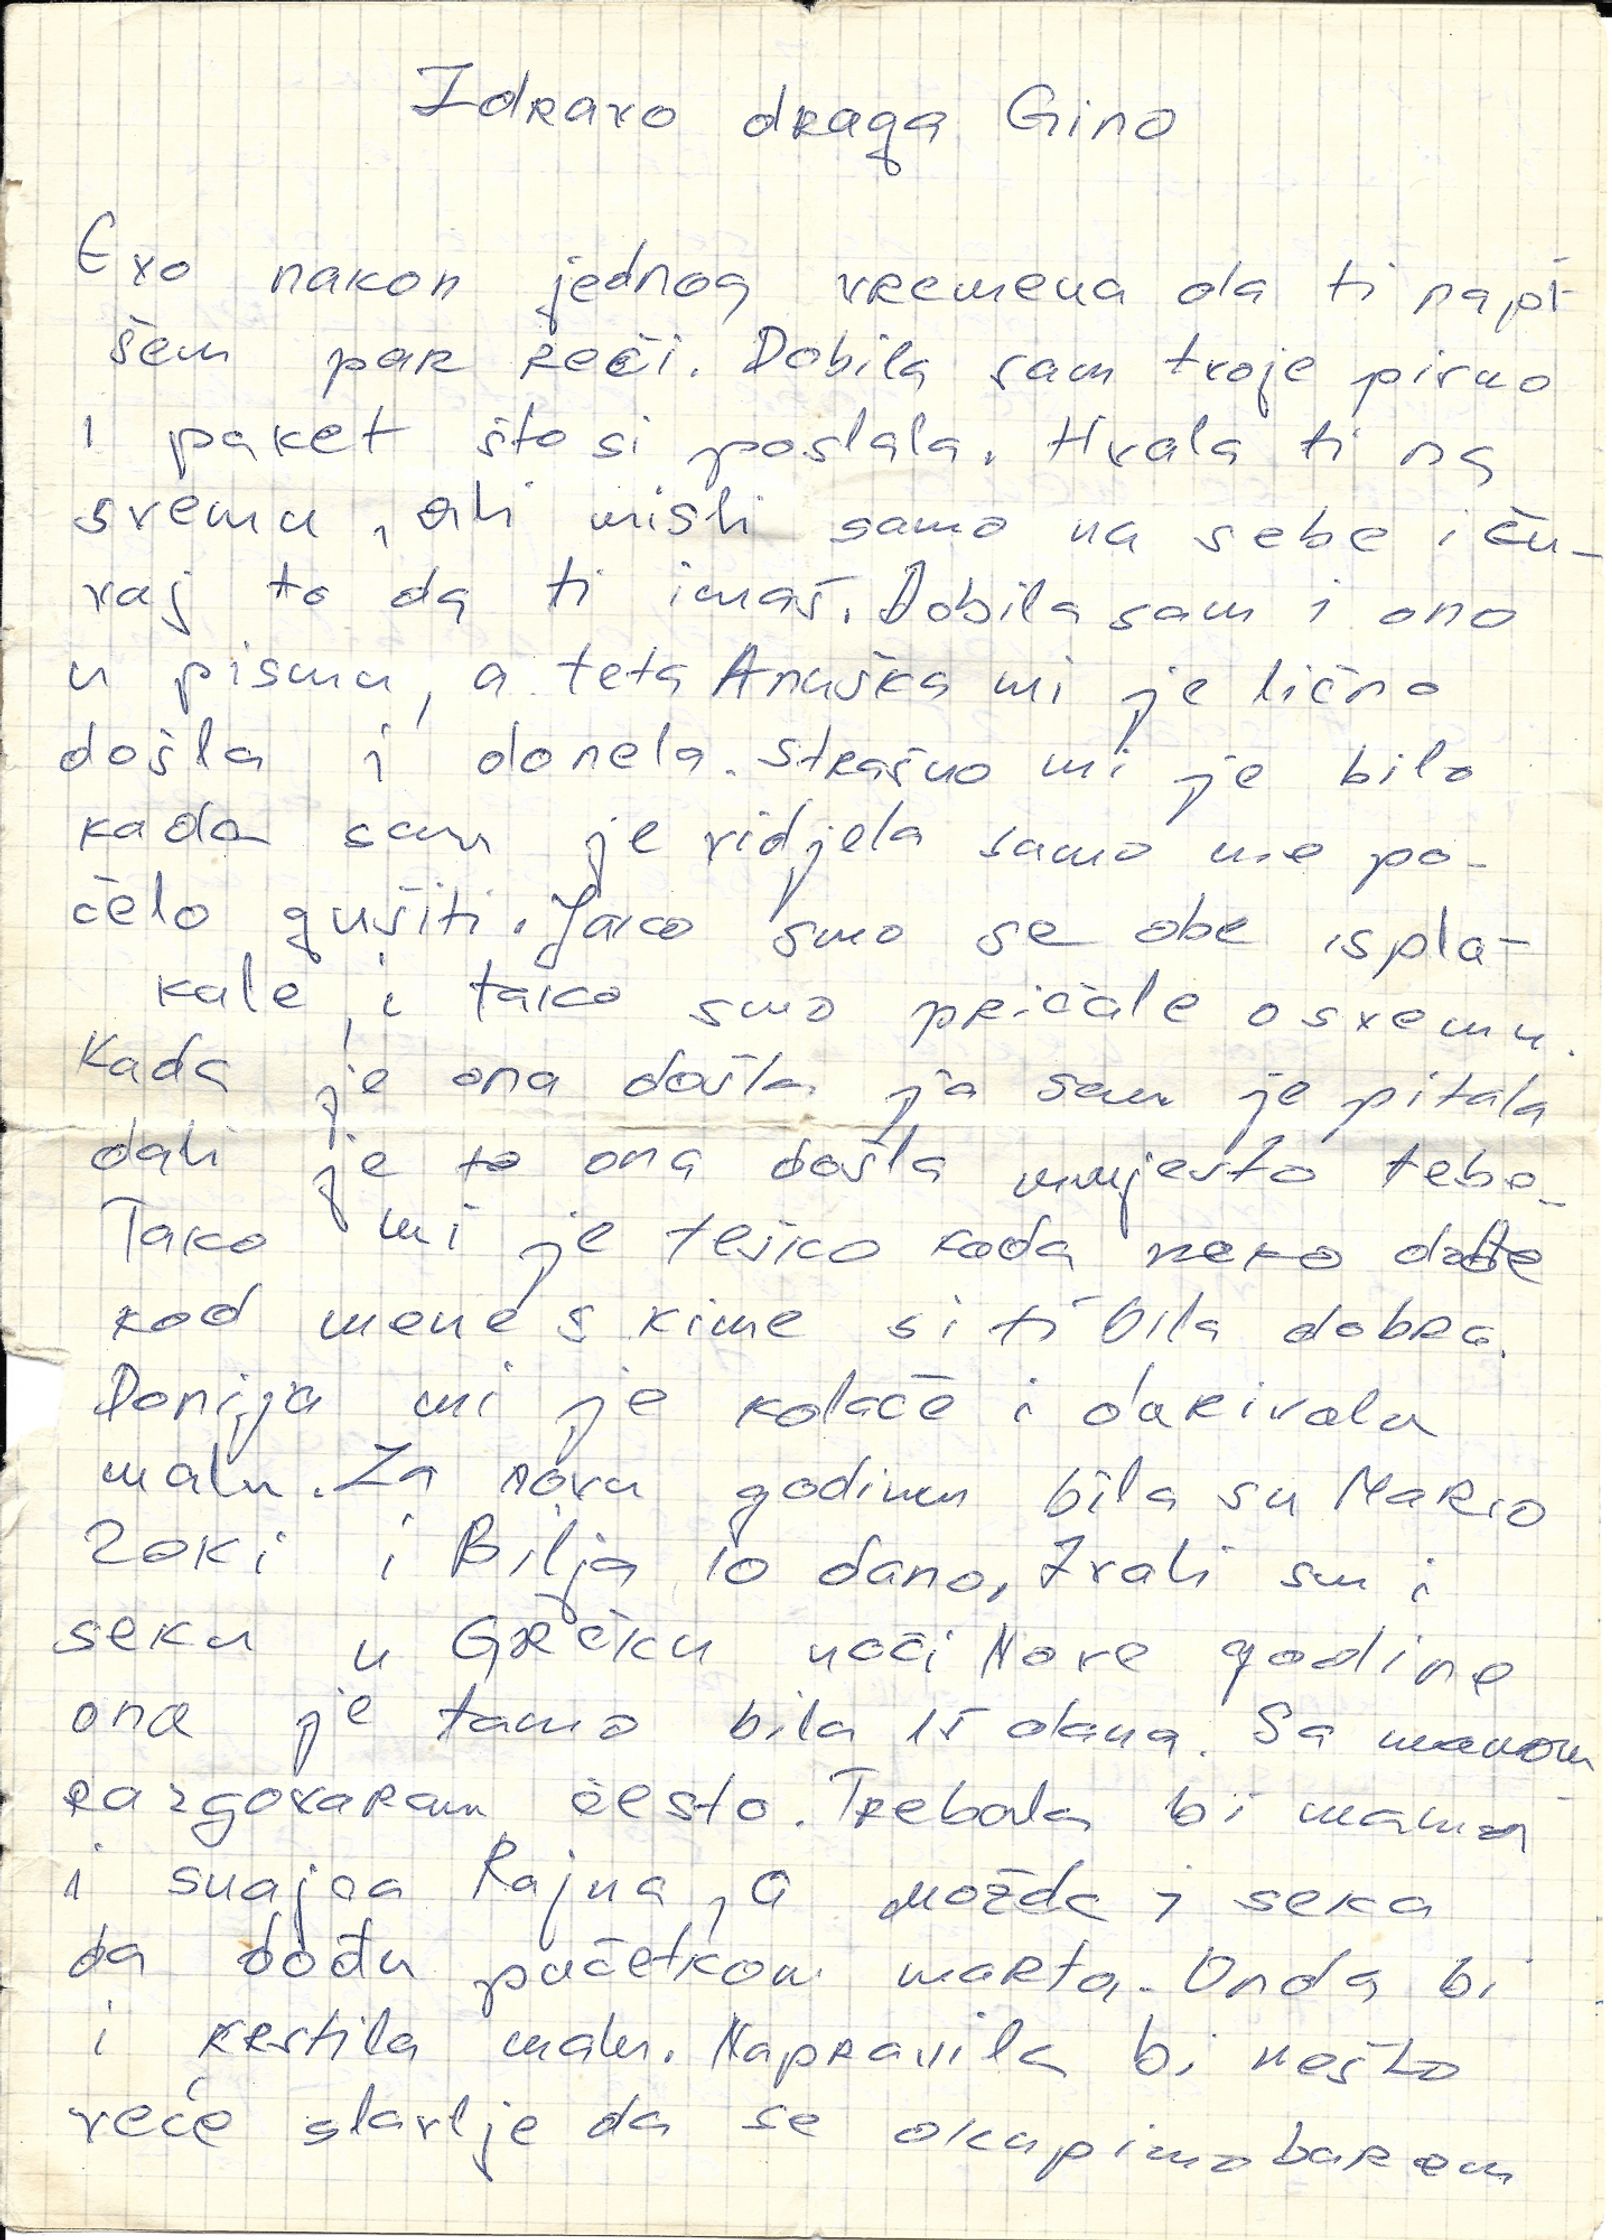 Zdravo draga Gino
Evo nakon jednog vremena da ti napi-
šem par reči. Dobila sam tvoje pismo
i paket što si poslala. Hvala ti na
svemu, ali misli samo na sebe i ču-
vaj to da ti imaš. Dobila sam i ono
u pismu, a teta Anuška mi je lično
došla i donela. Strašno mi je bilo
kada sam je vidjela samo me po-
čelo gušiti. Jako smo se obe ispla-
kale, i tako smo pričale o svemu.
Kada je ona došla ja sam je pitala
dali je to ona došla umjesto tebe.
Tako mi je teško kada neko dođe
kod mene s kime si ti bila dobra.
Donija mi je kolače i darivala
malu. Za novu godinu bila su Mario
Zoki i Bilja 10 dano. Zvali su i
seku u Grčku uoči Nove godine
ona je tamo bila 15 dana. Sa mamom
razgovaram često. Trebala bi mama
i snajca Rajna, a možda i seka
da dođu početkom marta. Onda bi
i krstila malu. Napravila bi nešto
veće slavlje da se okupimo barem